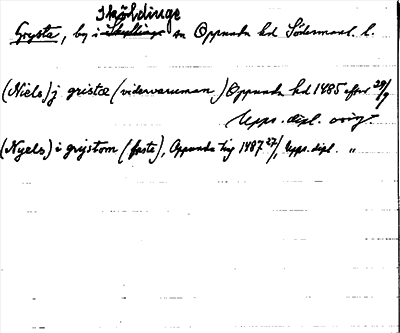 Sköldinge
Grysta, by i Skyllinge sn Oppunda hd Södermanl. l.
(Niels) j gristæ (vidervaruman) Oppunda hd 1485 efter 29/9
Upps. dipl. orig.
(Nyels) i grystom (faste), Oppunda hg 1487 27/1, Upps. dipl. "